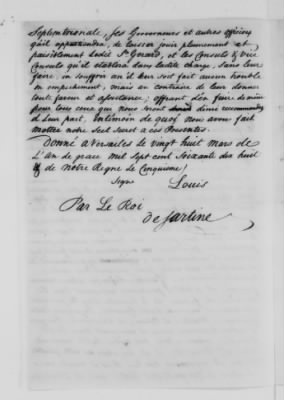 Septentrionale, Ses Gouverneurs et autres officiers
qu'il appartiendra, de laisser jouir pleinement et
paisiblement ledit Sr. Gerard, et les Consuls & vice
Consuls qu'il établira dans ladite charge, sans leur
faire, ni souffrir qu'il leur soit fait aucun trouble
ou empêchement, mais au contraire de leur donner
toute faveur et assistance; offrant d'en faire de même
pour tous ceux qui Nous seront
de leur part. En témoin de quoi Nous avons fait
mettre notre Scel Secret a ces Presentes.
Donné a Versailles Le vingt huit Mars de
L'an de grace Mil Sept cent Soixante dix huit
& de Notre Regne Le Cinquieme /
Signé Louis
Par Le Roi
de Sartine /